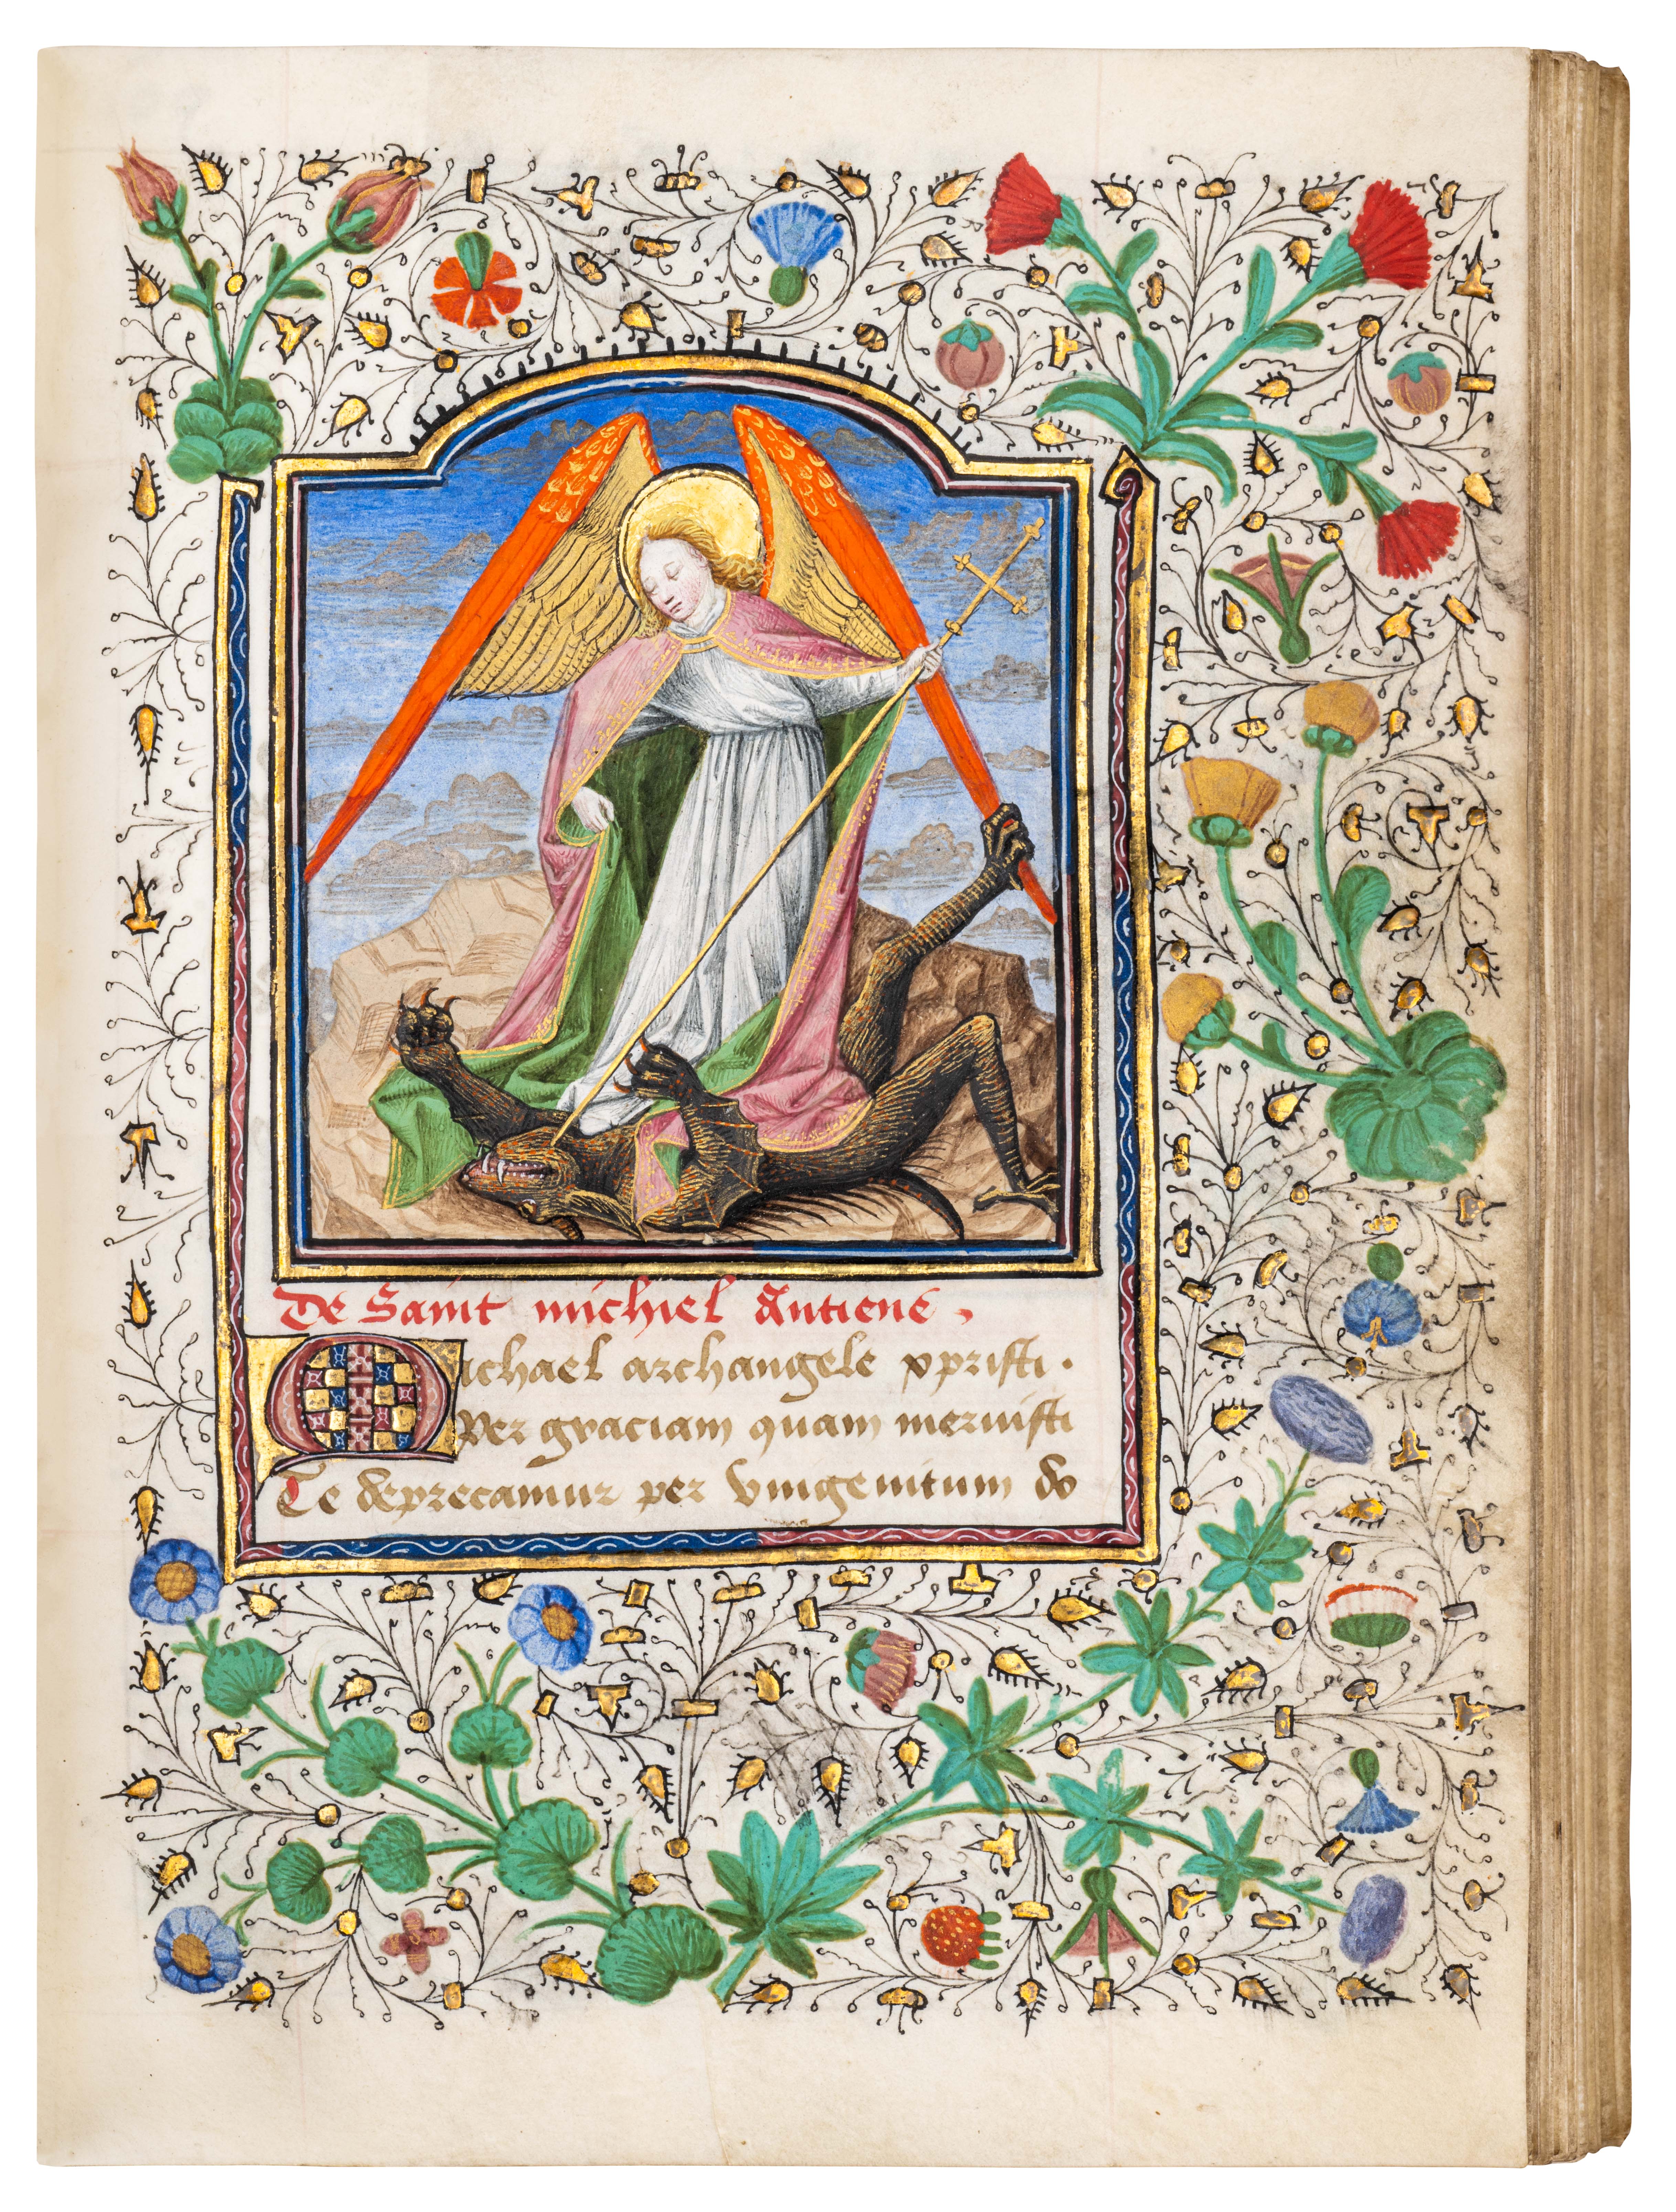 De Saint michiel Antiene.
Michael archangele xpristi.
Per graciam quam meruisti
Te deprecamur per Vnigenitum do